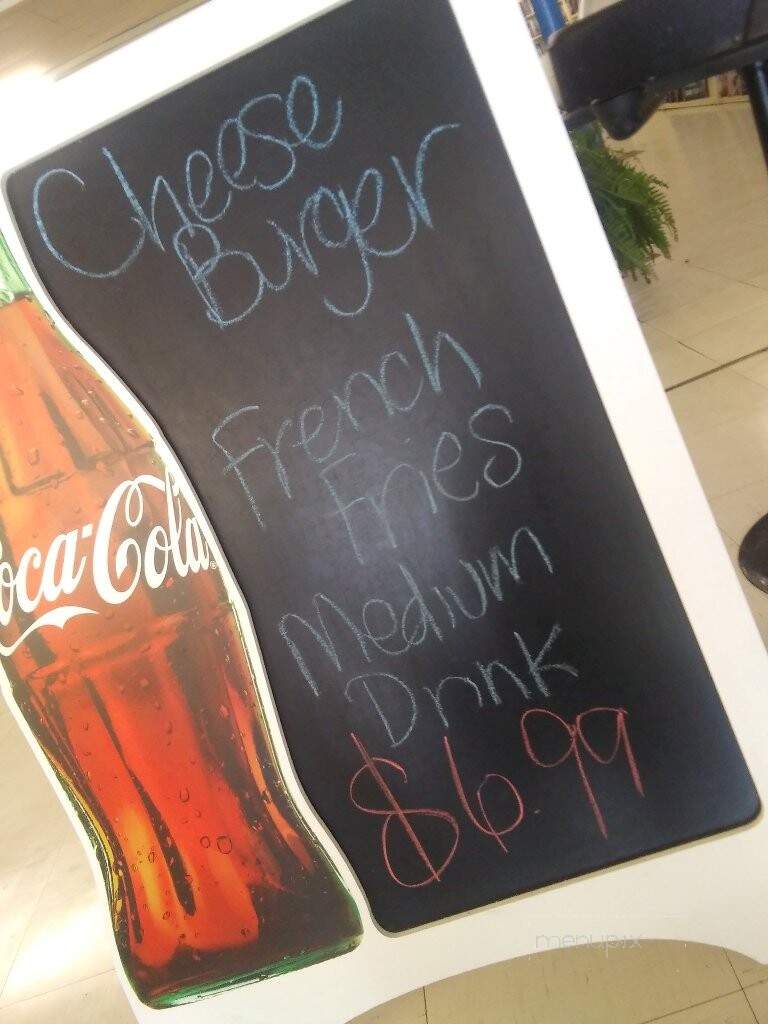 Cheese
Burger
French
Fries
Medium
Drink
$6.99
Coca-Cola
menupix